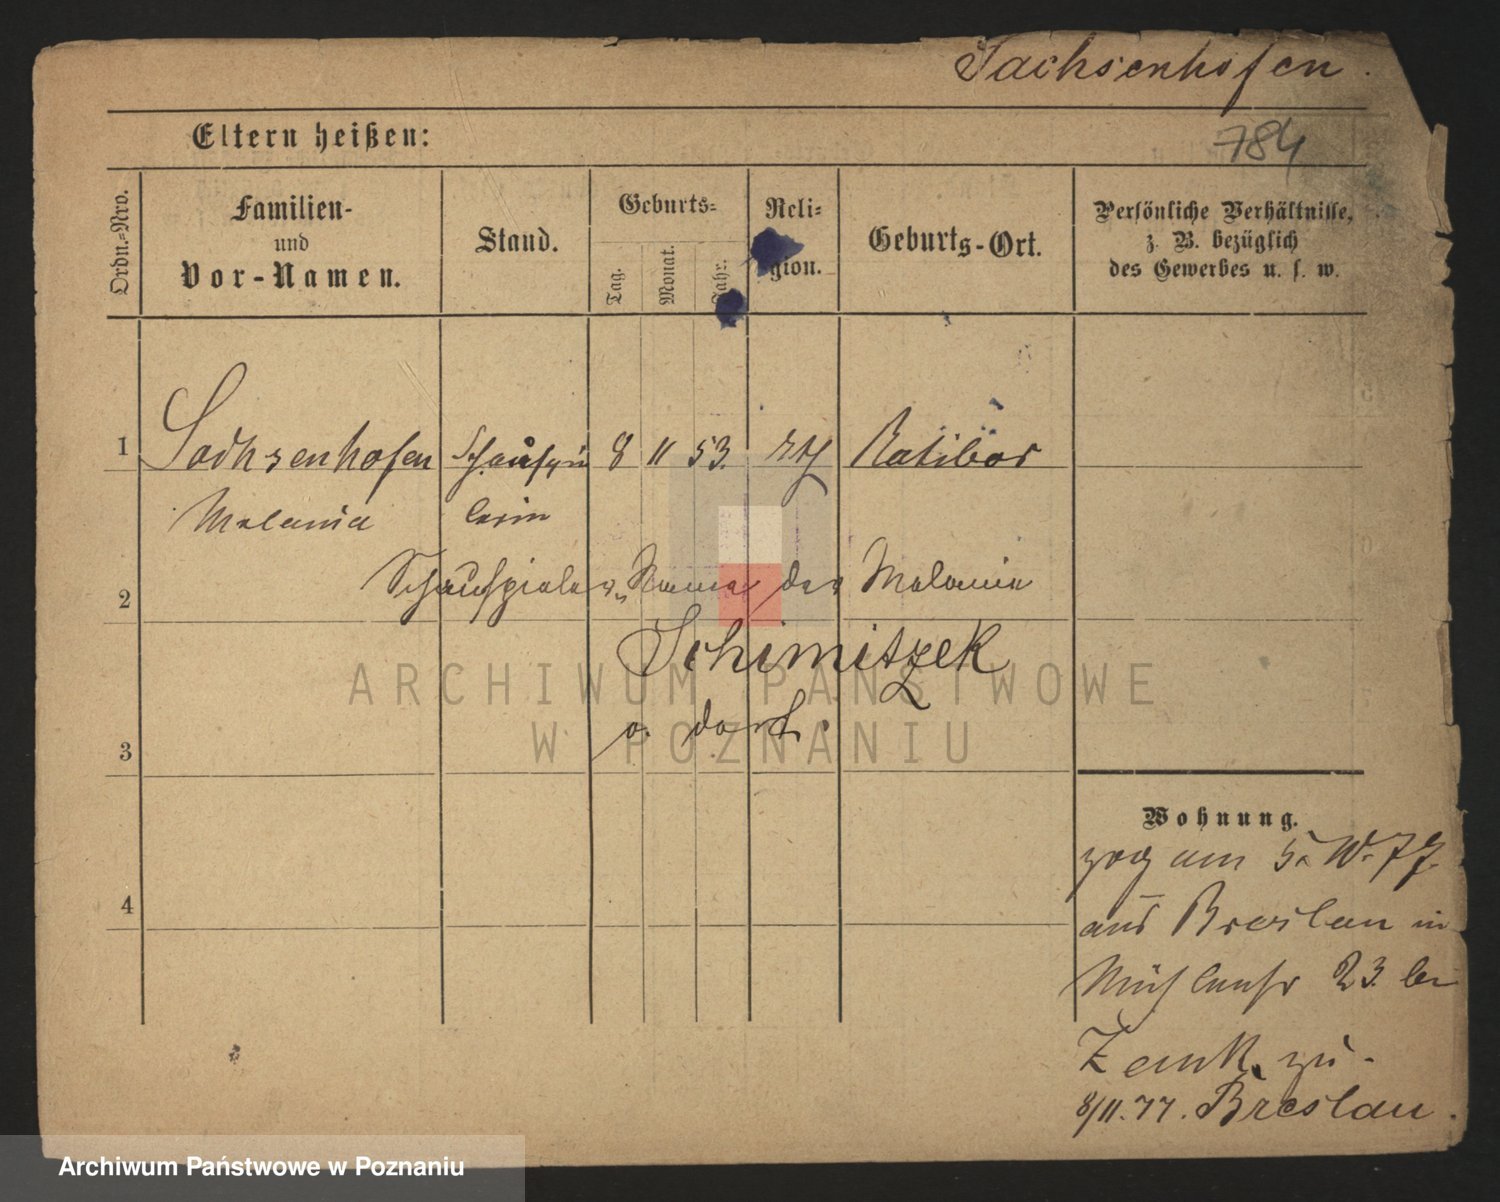 Sachsenhofen.
784
Eltern heißen:
Ordn.-Nro.
Familien-
und
Vor-Namen.
Stand.
Geburts-
Tag.
Monat.
Jahr.
Reli-
gion.
Geburts-Ort.
Persönliche Verhältnisse,
z. B. bezüglich
des Gewerbes u. s. w.
1
Sachsenhofen
Schauspie
8
11
53.
Ratibor
Melanie
lerin
2
Schauspieler Name der Melanie
Schimitzek
3
ARCHIWUM PAŃSTWOWE
W POZNANIU
Wohnung.
zog am 5. 77
aus Breslau in
Mühlenstr 23. bei
4
Zenk zu
8/11. 77. Breslau.
Archiwum Państwowe w Poznaniu